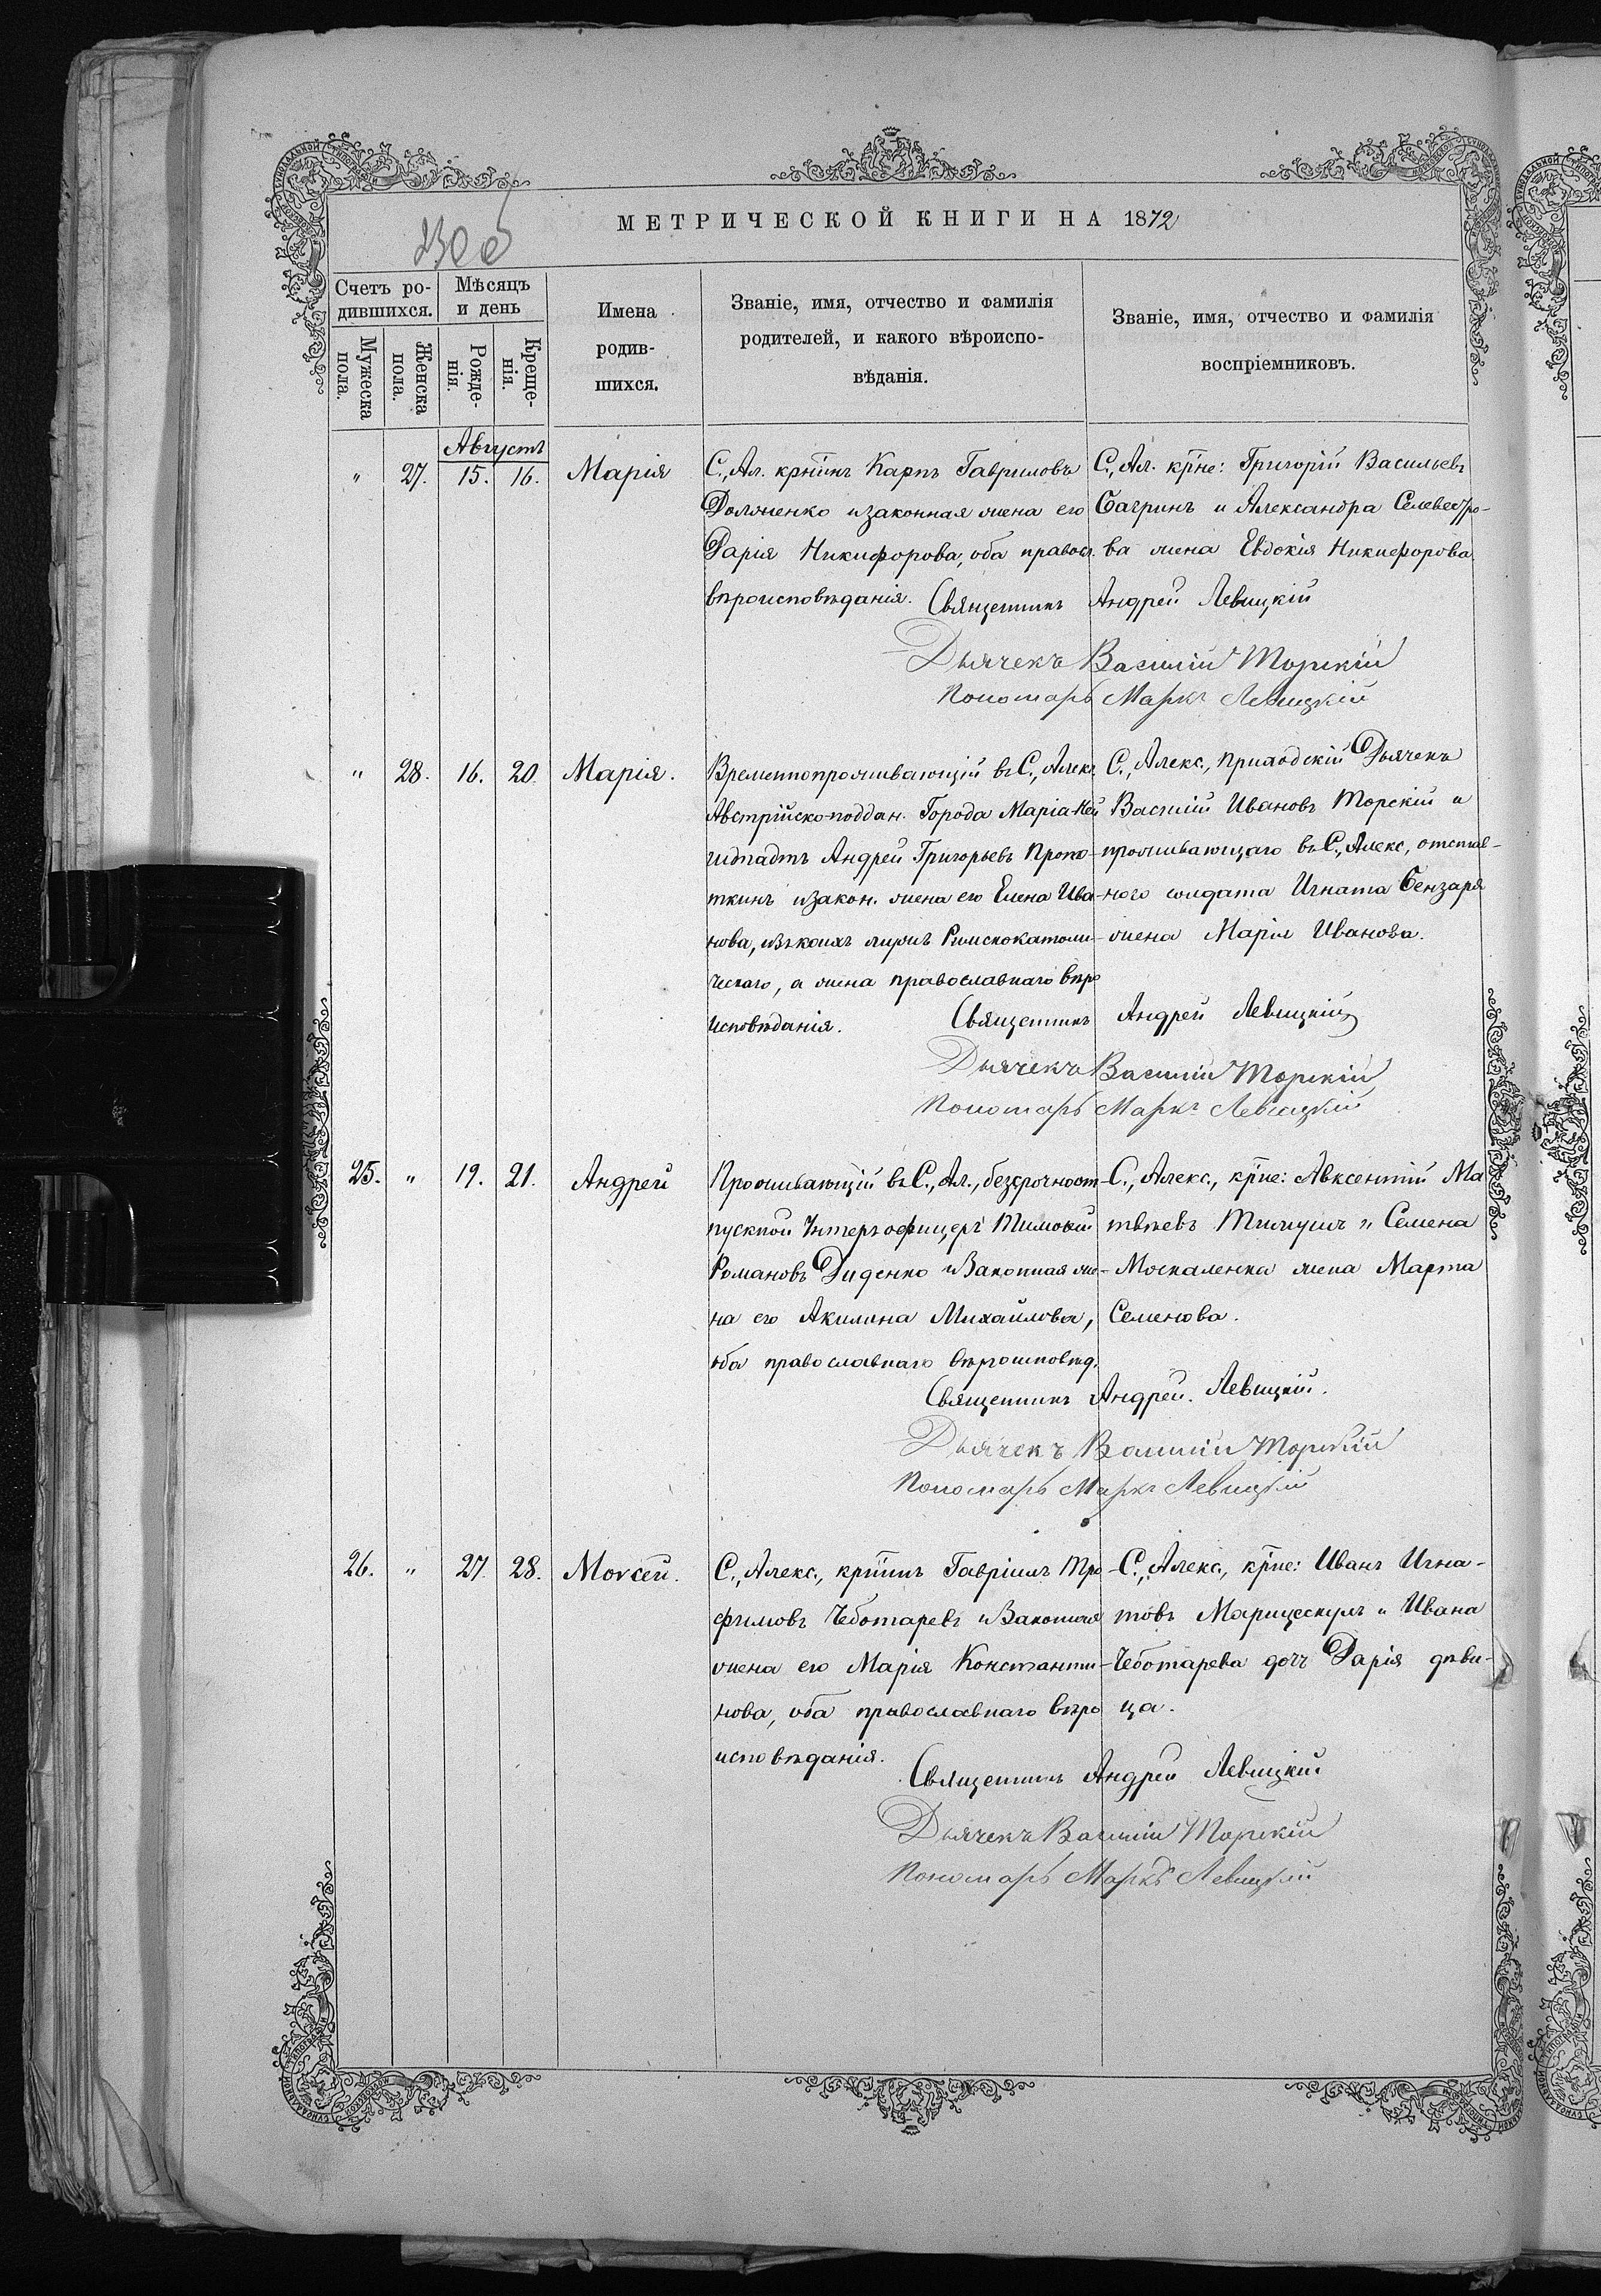 МЕТРИЧЕСКОЙ КНИГИ НА 1872
230 об
Счетъ ро-
дившихся.
Мужеска
пола.
Женска
пола.
Мѣсяцъ
и день
Рожде-
нія.
Креще-
нія.
Имена
родив-
шихся.
Званіе, имя, отчество и фамилія
родителей, и какого вѣроиспо-
вѣданія.
Званіе, имя, отчество и фамилія
воспріемниковъ.
Августъ
" 27. 15. 16. Марія
С., Ал. крт̃инъ Карпъ Гавриловъ
Долженко и законная жена его
Дарія Никифорова, оба правосл.
вѣроисповѣданія.
С., Ал. кр̃не: Григорій Васильевъ
Багринъ и Александра Селевестро-
ва жена Евдокія Никифорова.
Священникъ Андрей Левицкій
Дьячекъ Василій Торскій
Пономарь Маркъ Левицкій
" 28. 16. 20. Марія.
Временнопроживающій въ С., Алекс.
Австрійско-поддан. Города Марія-Ней
штадтъ Андрей Григорьевъ
и закон. жена его Елена Ива-
нова, изъ коихъ мужъ Римскокатоли-
ческаго, а жена православнаго вѣро
исповѣданія.
С., Алекс., приходскій Дьячекъ
Василій Ивановъ Торскій и
проживающаго въ С., Алекс, отстав-
ного солдата Игната Бензаря
жена Марія Иванова.
Священникъ Андрей Левицкій
Дьячекъ Василій Торскій
Пономарь Маркъ Левицкій
25. " 19. 21. Андрей
Проживающій въ С., Ал., безсрочноот-
пускной Унтеръ-офицеръ Тимофій
Романовъ Диденко и Законная же-
на его Акилина Михайлова,
оба православнаго вѣроисповѣд.
С., Алекс., кр̃не: Авксентій Ма
твѣевъ и Семена
Москаленка жена Марта
Семенова.
Священникъ Андрей. Левицкій.
Дьячекъ Василій Торскій
Пономарь Маркъ Левицкій
26. " 27. 28. Моѵсей.
С., Алекс., крт̃инъ Гавріилъ Тро
фимовъ Чеботаревъ и Законная
жена его Марія Константи-
нова, оба православнаго вѣро
исповѣданія.
С., Алекс, кр̃не: Иванъ Игна-
товъ Марицескулъ и Ивана
Чеботарева дочь Дарія дѣви-
ца.
Священникъ Андрей Левицкій
Дьячекъ Василій Торскій
Пономарь Маркъ Левицкій